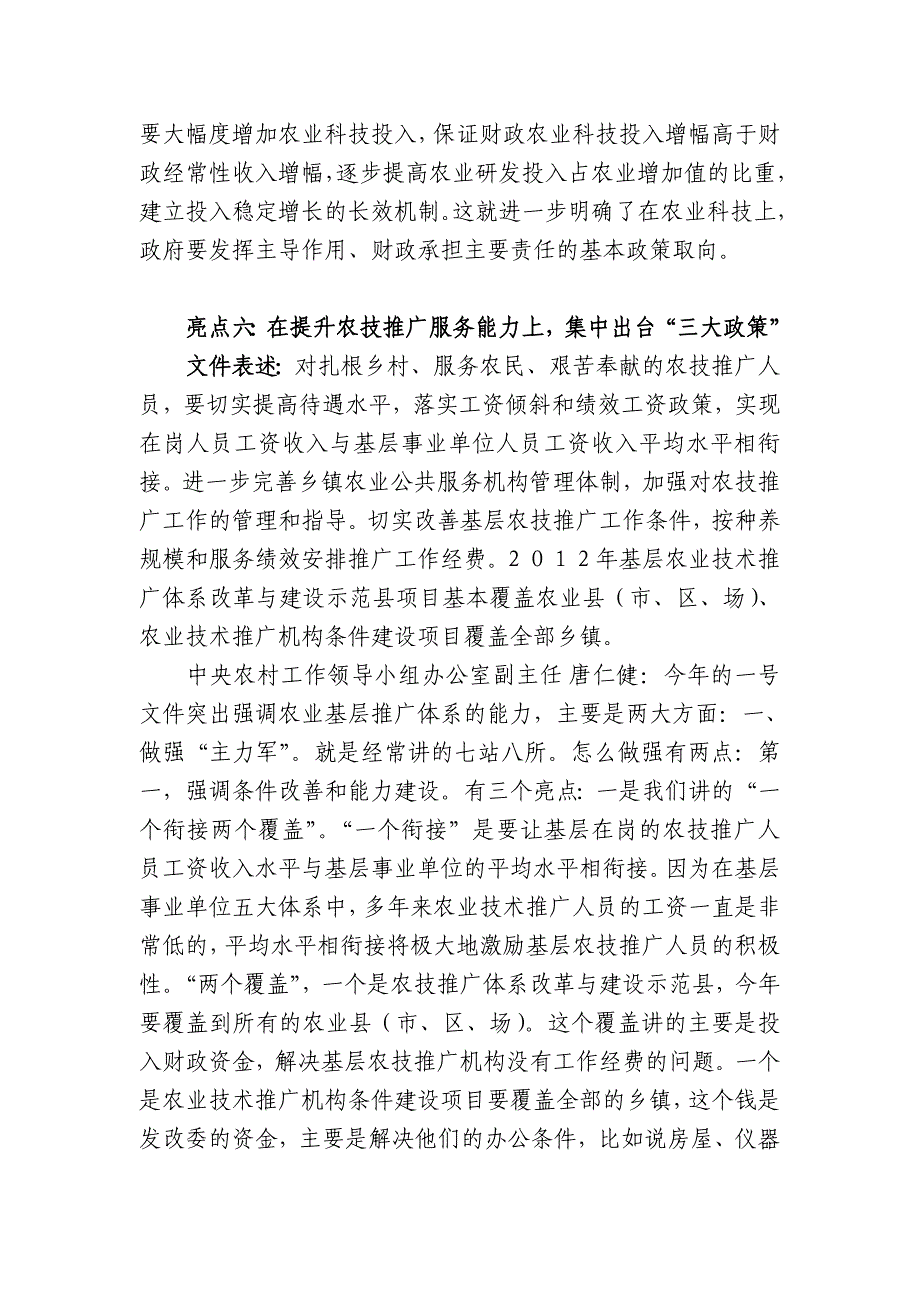 要大幅度增加农业科技投入，保证财政农业科技投入增幅高于财
政经常性收入增幅，逐步提高农业研发投入占农业增加值的比重，
建立投入稳定增长的长效机制。这就进一步明确了在农业科技上，
政府要发挥主导作用、财政承担主要责任的基本政策取向。
亮点六：在提升农技推广服务能力上，集中出台“三大政策”
文件表述：对扎根乡村、服务农民、艰苦奉献的农技推广人
员，要切实提高待遇水平，落实工资倾斜和绩效工资政策，实现
在岗人员工资收入与基层事业单位人员工资收入平均水平相衔
接。进一步完善乡镇农业公共服务机构管理体制，加强对农技推
广工作的管理和指导。切实改善基层农技推广工作条件，按种养
规模和服务绩效安排推广工作经费。２０１２年基层农业技术推
广体系改革与建设示范县项目基本覆盖农业县（市、区、场）、
农业技术推广机构条件建设项目覆盖全部乡镇。
中央农村工作领导小组办公室副主任 唐仁健：今年的一号
文件突出强调农业基层推广体系的能力，主要是两大方面：一、
做强“主力军”。就是经常讲的七站八所。怎么做强有两点：第
一，强调条件改善和能力建设。有三个亮点：一是我们讲的“一
个衔接两个覆盖”。“一个衔接”是要让基层在岗的农技推广人
员工资收入水平与基层事业单位的平均水平相衔接。因为在基层
事业单位五大体系中，多年来农业技术推广人员的工资一直是非
常低的，平均水平相衔接将极大地激励基层农技推广人员的积极
性。“两个覆盖”，一个是农技推广体系改革与建设示范县，今年
要覆盖到所有的农业县（市、区、场）。这个覆盖讲的主要是投
入财政资金，解决基层农技推广机构没有工作经费的问题。一个
是农业技术推广机构条件建设项目要覆盖全部的乡镇，这个钱是
发改委的资金，主要是解决他们的办公条件，比如说房屋、仪器